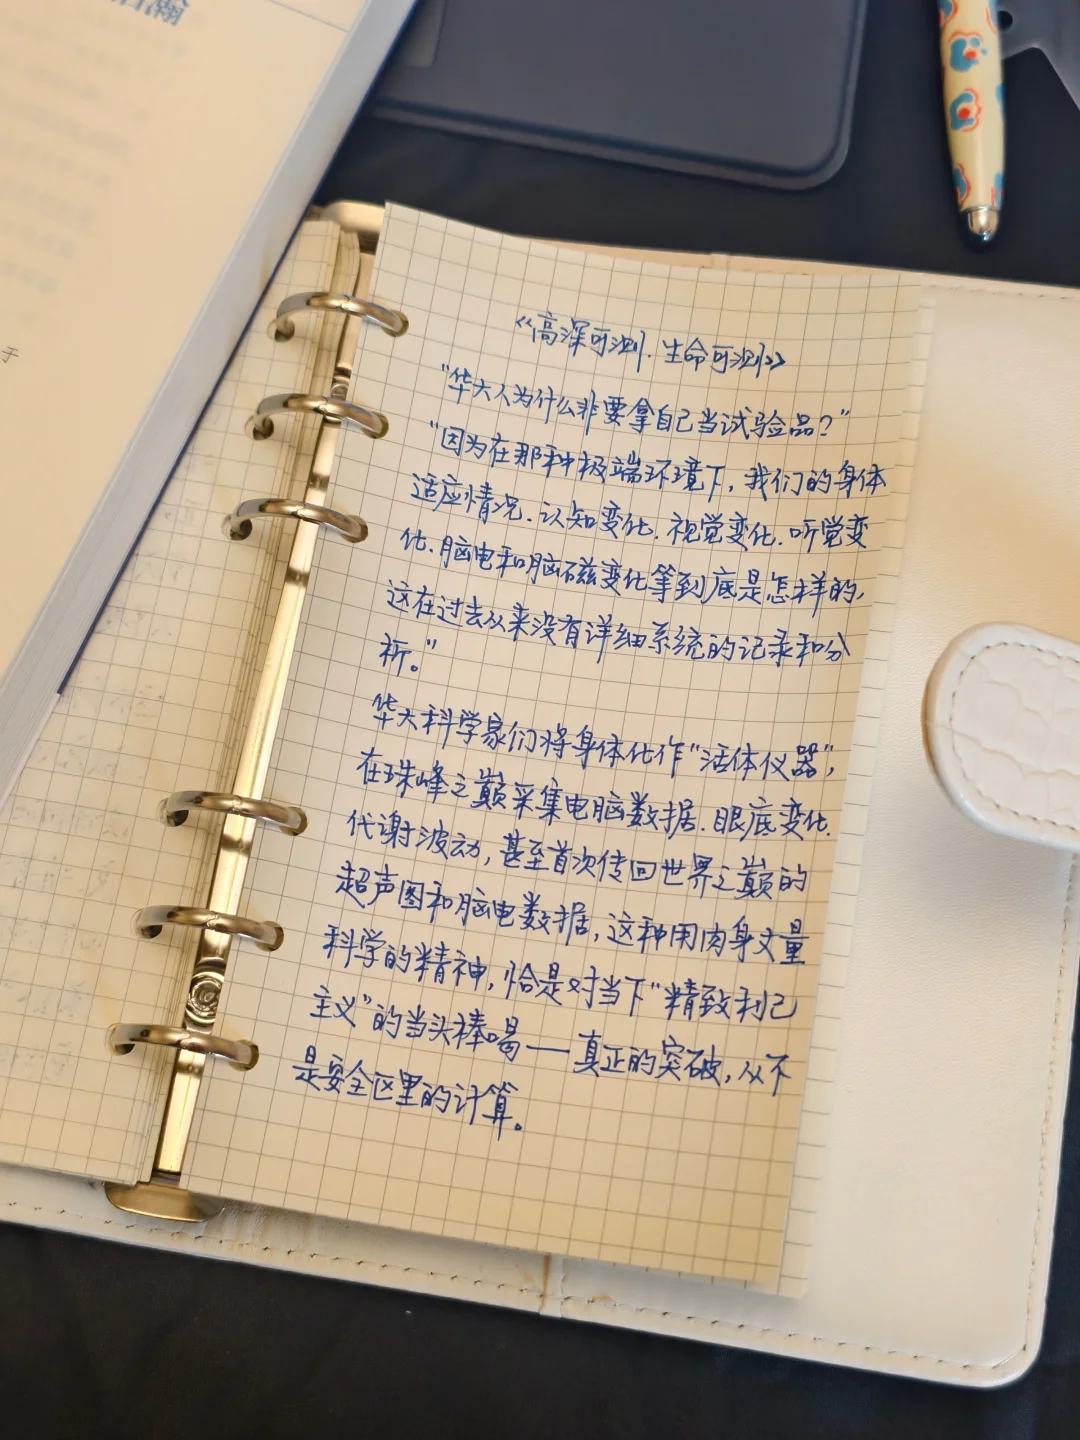 瀚
于
《高深可测.生命可测》
"华大人为什么非要拿自己当试验品?"
"因为在那种极端环境下,我们的身体
适应情况.认知变化.视觉变化.听觉变
化.脑电和脑磁变化等到底是怎样的,
这在过去从来没有详细系统的记录和分
析。"
华大科学家们将身体化作"活体仪器",
在珠峰之巅采集电脑数据.眼底变化.
代谢波动,甚至首次传回世界之巅的
超声图和脑电数据,这种用肉身丈量
科学的精神,恰是对当下"精致利己
主义"的当头棒喝——真正的突破,从不
是安全区里的计算。